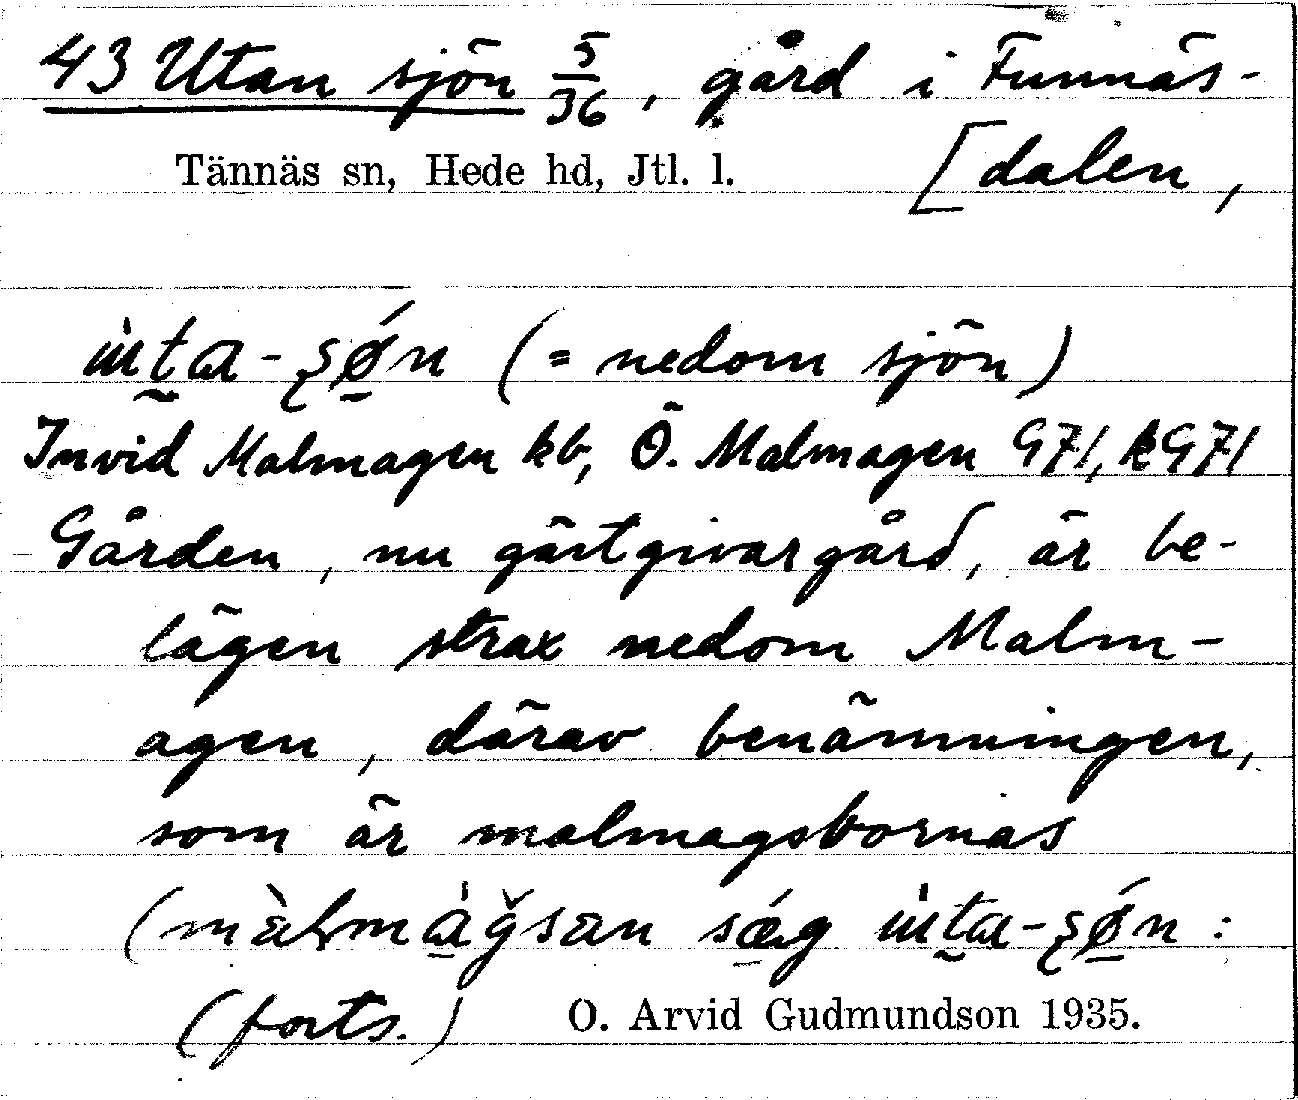 43 Utan sjön 5/36, gård i Funnäs-
Tännäs sn, Hede hd, Jtl. l. [dalen,
(= nedom sjön)
Invid Malmagen kb, Ö. Malmagen G71, kG71
Gården, nu gästgivargård, är be-
lägen strax nedom Malm-
agen, därav benämningen,
som är malmagsbornas
(forts.) O. Arvid Gudmundson 1935.